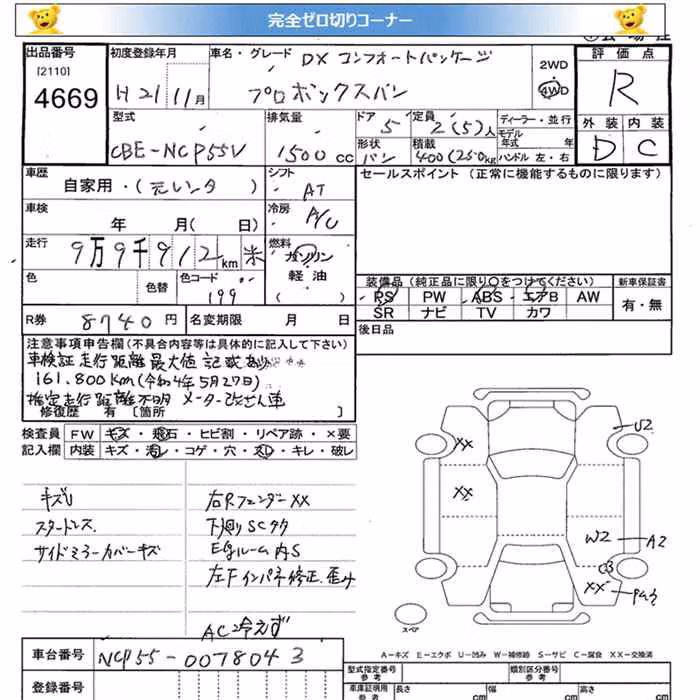 完全ゼロ切りコーナー
出品番号
[2110]
4669
初度登録年月
H21 11月
車名・グレード DX コンフォートパッケージ
プロボックスバン
2WD
4WD
評価点
R
外装 内装
D C
型式
CBE-NCP55V
排気量
1500cc
ドア 5
形状 バン
定員 2(5)人
積載 400(250kg
ディーラー・並行
モデル
年式 年
ハンドル 左・右
車歴
自家用・(元レンタ)
シフト AT
セールスポイント (正常に機能するものに限ります)
車検
年 月( 日)
冷房 A/C
走行 9万9千912km 米
燃料 ガソリン
軽油
( )
色
色替
色コード 199
装備品 (純正品に限り○をつけてください)
PS PW ABS エアB AW
SR ナビ TV カワ
新車保証書
有・無
R券 8740円 名変期限 月 日
後日品
注意事項申告欄(不具合内容等は具体的に記入して下さい)
車検証走行距離最大値記載あり
161,800km(令和4年5月27日)
推定走行距離不明 メーター改ざん車
修復歴 有〔箇所 〕
検査員 FW キズ・飛石・ヒビ割・リペア跡・×要
記入欄 内装 キズ・汚レ・コゲ・穴・スレ・キレ・破レ
キズU
スタートレス
サイドミラーカバーキズ
右Rフェンダー XX
下廻りSCタク
Egルーム内S
左Fインパネ修正、歪み
AC冷えず
U2
XX
XX
W2
A2
XX
スペア
A-キズ E-エクボ U-凹み W-補修跡 S-サビ C-腐食 XX-交換済
車台番号 NCP55-0078043
登録番号
型式指定番号
類別区分番号
車庫証明用
参考
長さ cm
幅 cm
高さ cm